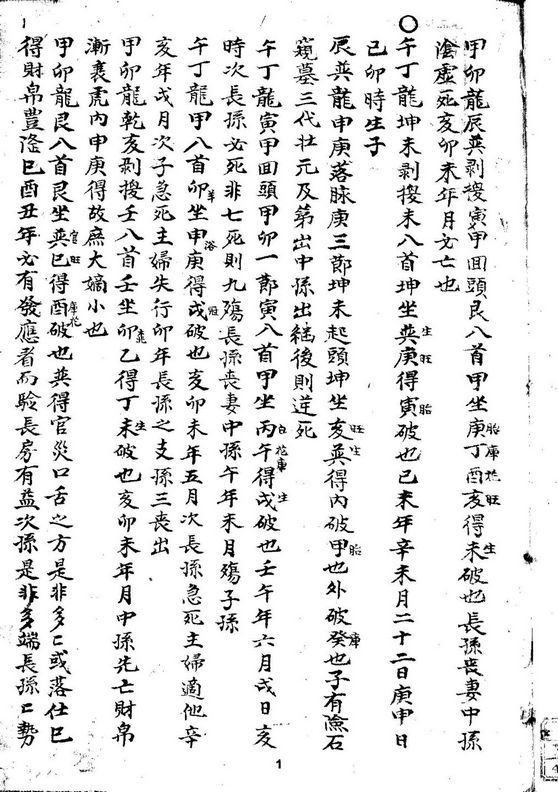 甲卯龍辰巽剥換寅甲回頭艮八首甲坐庚胎丁庫酉亥旺得未生破也長孫喪妻中孫
陰虛死亥卯未年月必亡也
○午丁龍坤未剥換未八首坤坐巽生庚旺得寅胎破也己未年辛未月二十二日庚申日
已卯時生子
辰巽龍申庚落脉庚三節坤未起頭坤坐亥旺巽生得內破甲胎也外破癸庫也子有險石
窺墓三代壮元及第出中孫出継後則逆死
午丁龍寅甲回頭甲卯一節寅八首甲坐丙午得戌生破也壬午年六月戌日亥
時次長孫必死非七死則九殤長孫喪妻中孫午年未月殤子孫
午丁龍甲八首卯坐申庚浴得戌破也亥卯未年五月次長孫急死主婦適他辛
亥年戌月次子急死主婦失行卯年長孫之支孫三喪出
甲卯龍乾亥剥換壬八首壬坐卯乙得丁未生破也亥卯未年月中孫先亡財帛
漸衰虎內申庚得故庶大嫡小也
甲卯龍艮八首艮坐巽官巳旺得酉破也巽得官災口舌之方是非多〻或落仕巳
得財帛豊隆巳酉丑年必有發應者而驗長房有益次孫是非多端長孫〻勢
1